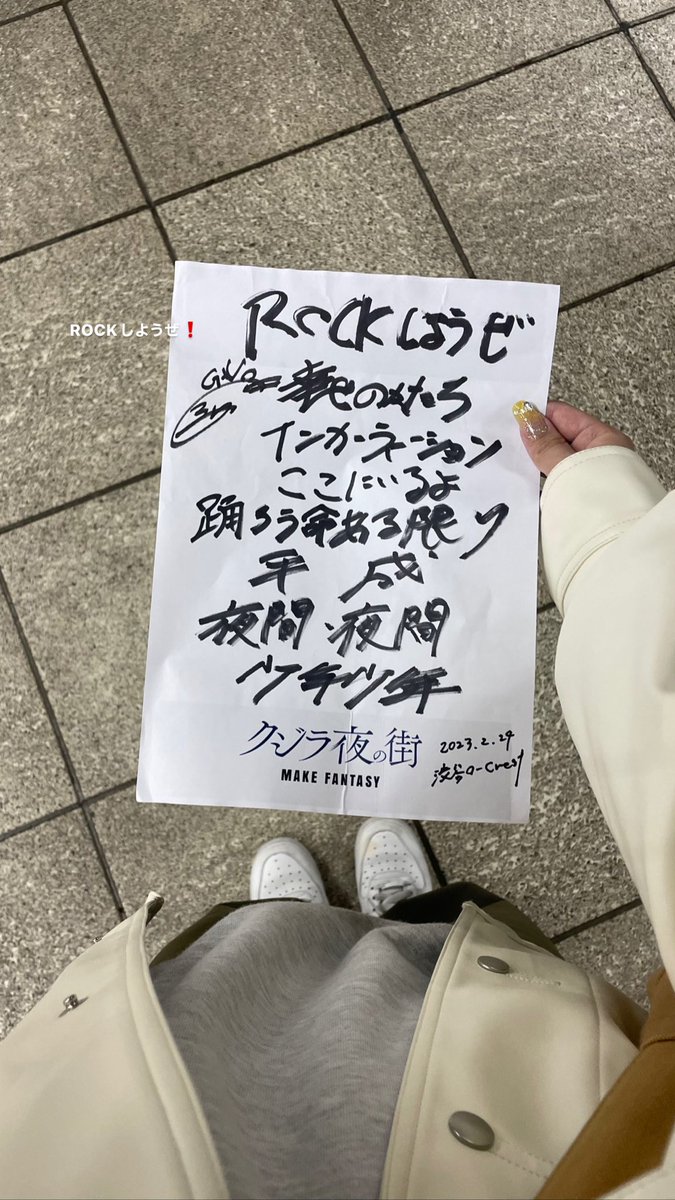 ROCKしようぜ❗
ROCKしようぜ
のかたち
インカーネーション
ここにいるよ
踊ろう命ある限り
平成
夜間・夜間
クジラ夜の街
MAKE FANTASY
2023.2.24
渋谷O-Crest